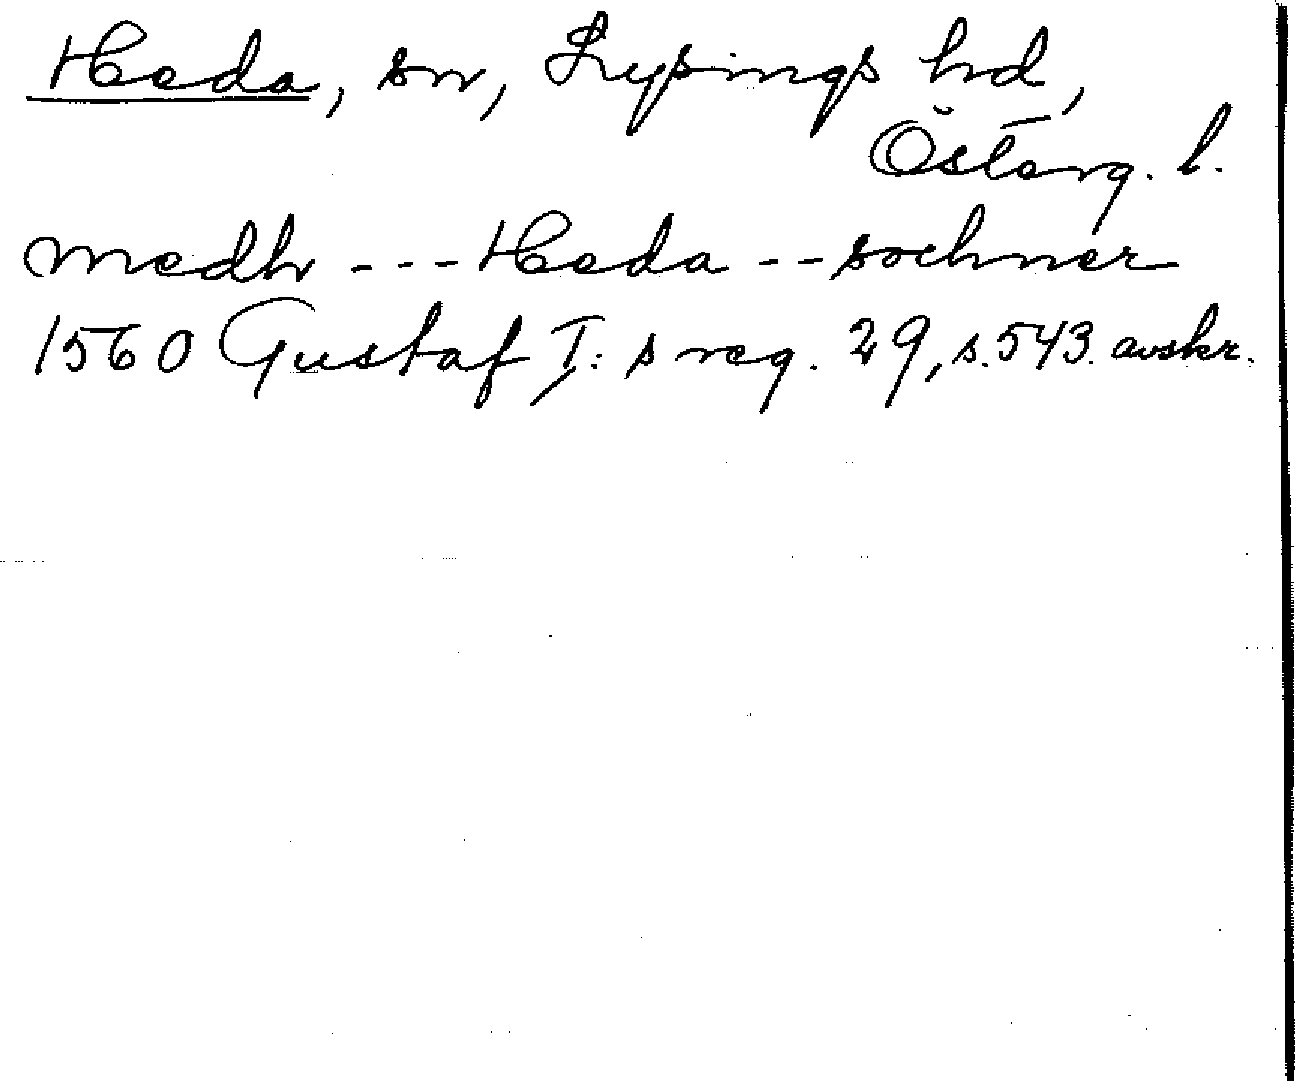 Heda, sn, Lysings hd,
Österg. l.
medh --- Heda -- sochner
1560 Gustaf I: s reg. 29, s. 543. avskr.